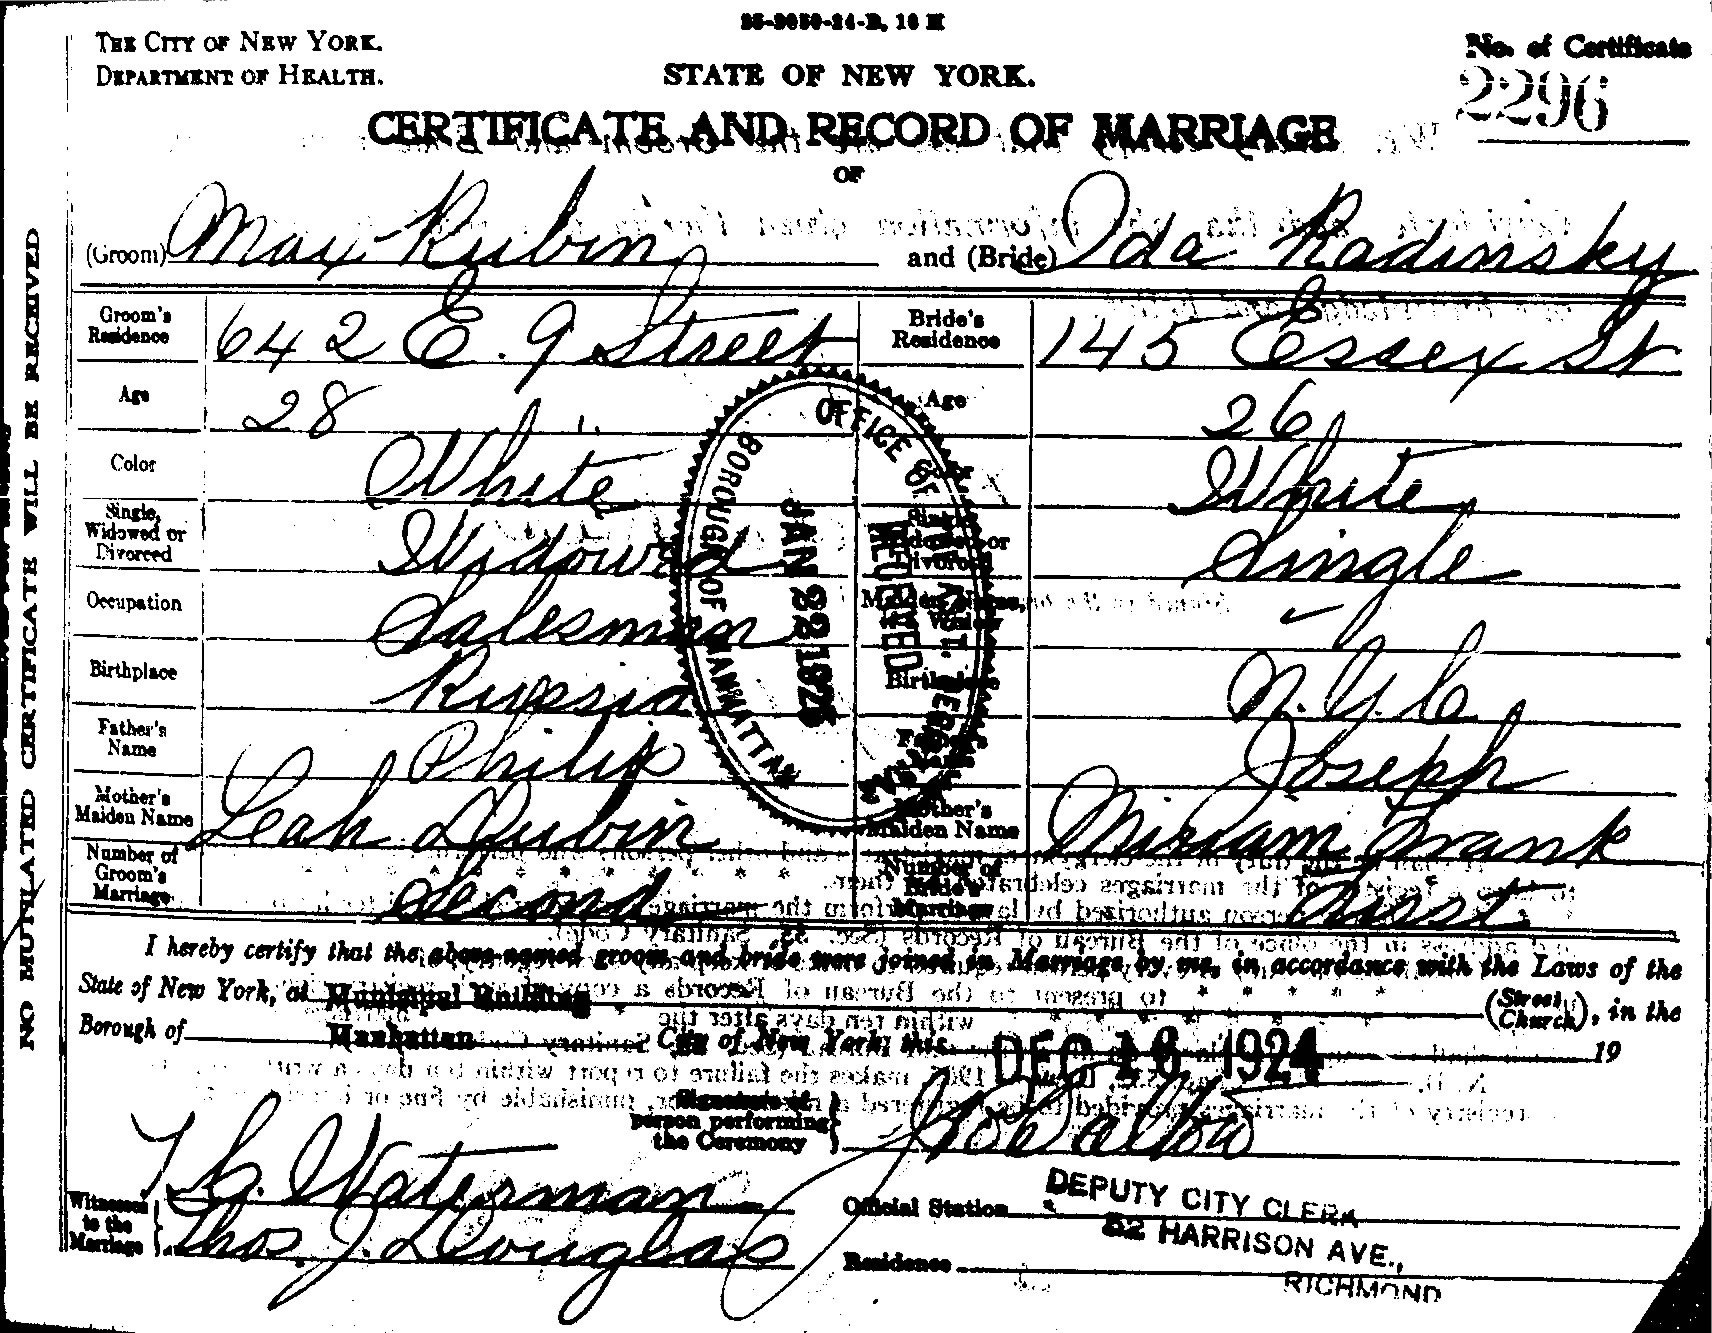 25-2050-24-B, 10 M
THE CITY OF NEW YORK.
DEPARTMENT OF HEALTH.
STATE OF NEW YORK.
No. of Certificate
2296
CERTIFICATE AND RECORD OF MARRIAGE
OF
(Groom) Max Rubin and (Bride) Ida Radinsky
Groom's Residence 642 E. 9 Street Bride's Residence 145 Essex St
Age 28 Age 26
Color White White
Single, Widowed or Divorced Widowed Single, Widowed or Divorced Single
Occupation Salesman Maiden Name,
Birthplace Russia Birthplace N.Y.C.
Father's Name Philip Father's Name Joseph
Mother's Maiden Name Leah Dubin Mother's Maiden Name Miriam Frank
Number of Groom's Marriage Second Number of Bride's Marriage First
OFFICE OF
BOROUGH OF MANHATTAN
JAN 22 1925
RECEIVED
I hereby certify that the above-named groom and bride were joined in Marriage by me, in accordance with the Laws of the
State of New York, at Municipal Building (Street Church), in the
Borough of Manhattan City of New York, this DEC 16 1924 19
Signature of person performing the Ceremony
T. G. Waterman
Witnesses to the Marriage
Thos. J. Douglas
Official Station DEPUTY CITY CLERK
82 HARRISON AVE.,
Residence RICHMOND
NO MUTILATED CERTIFICATE WILL BE RECEIVED